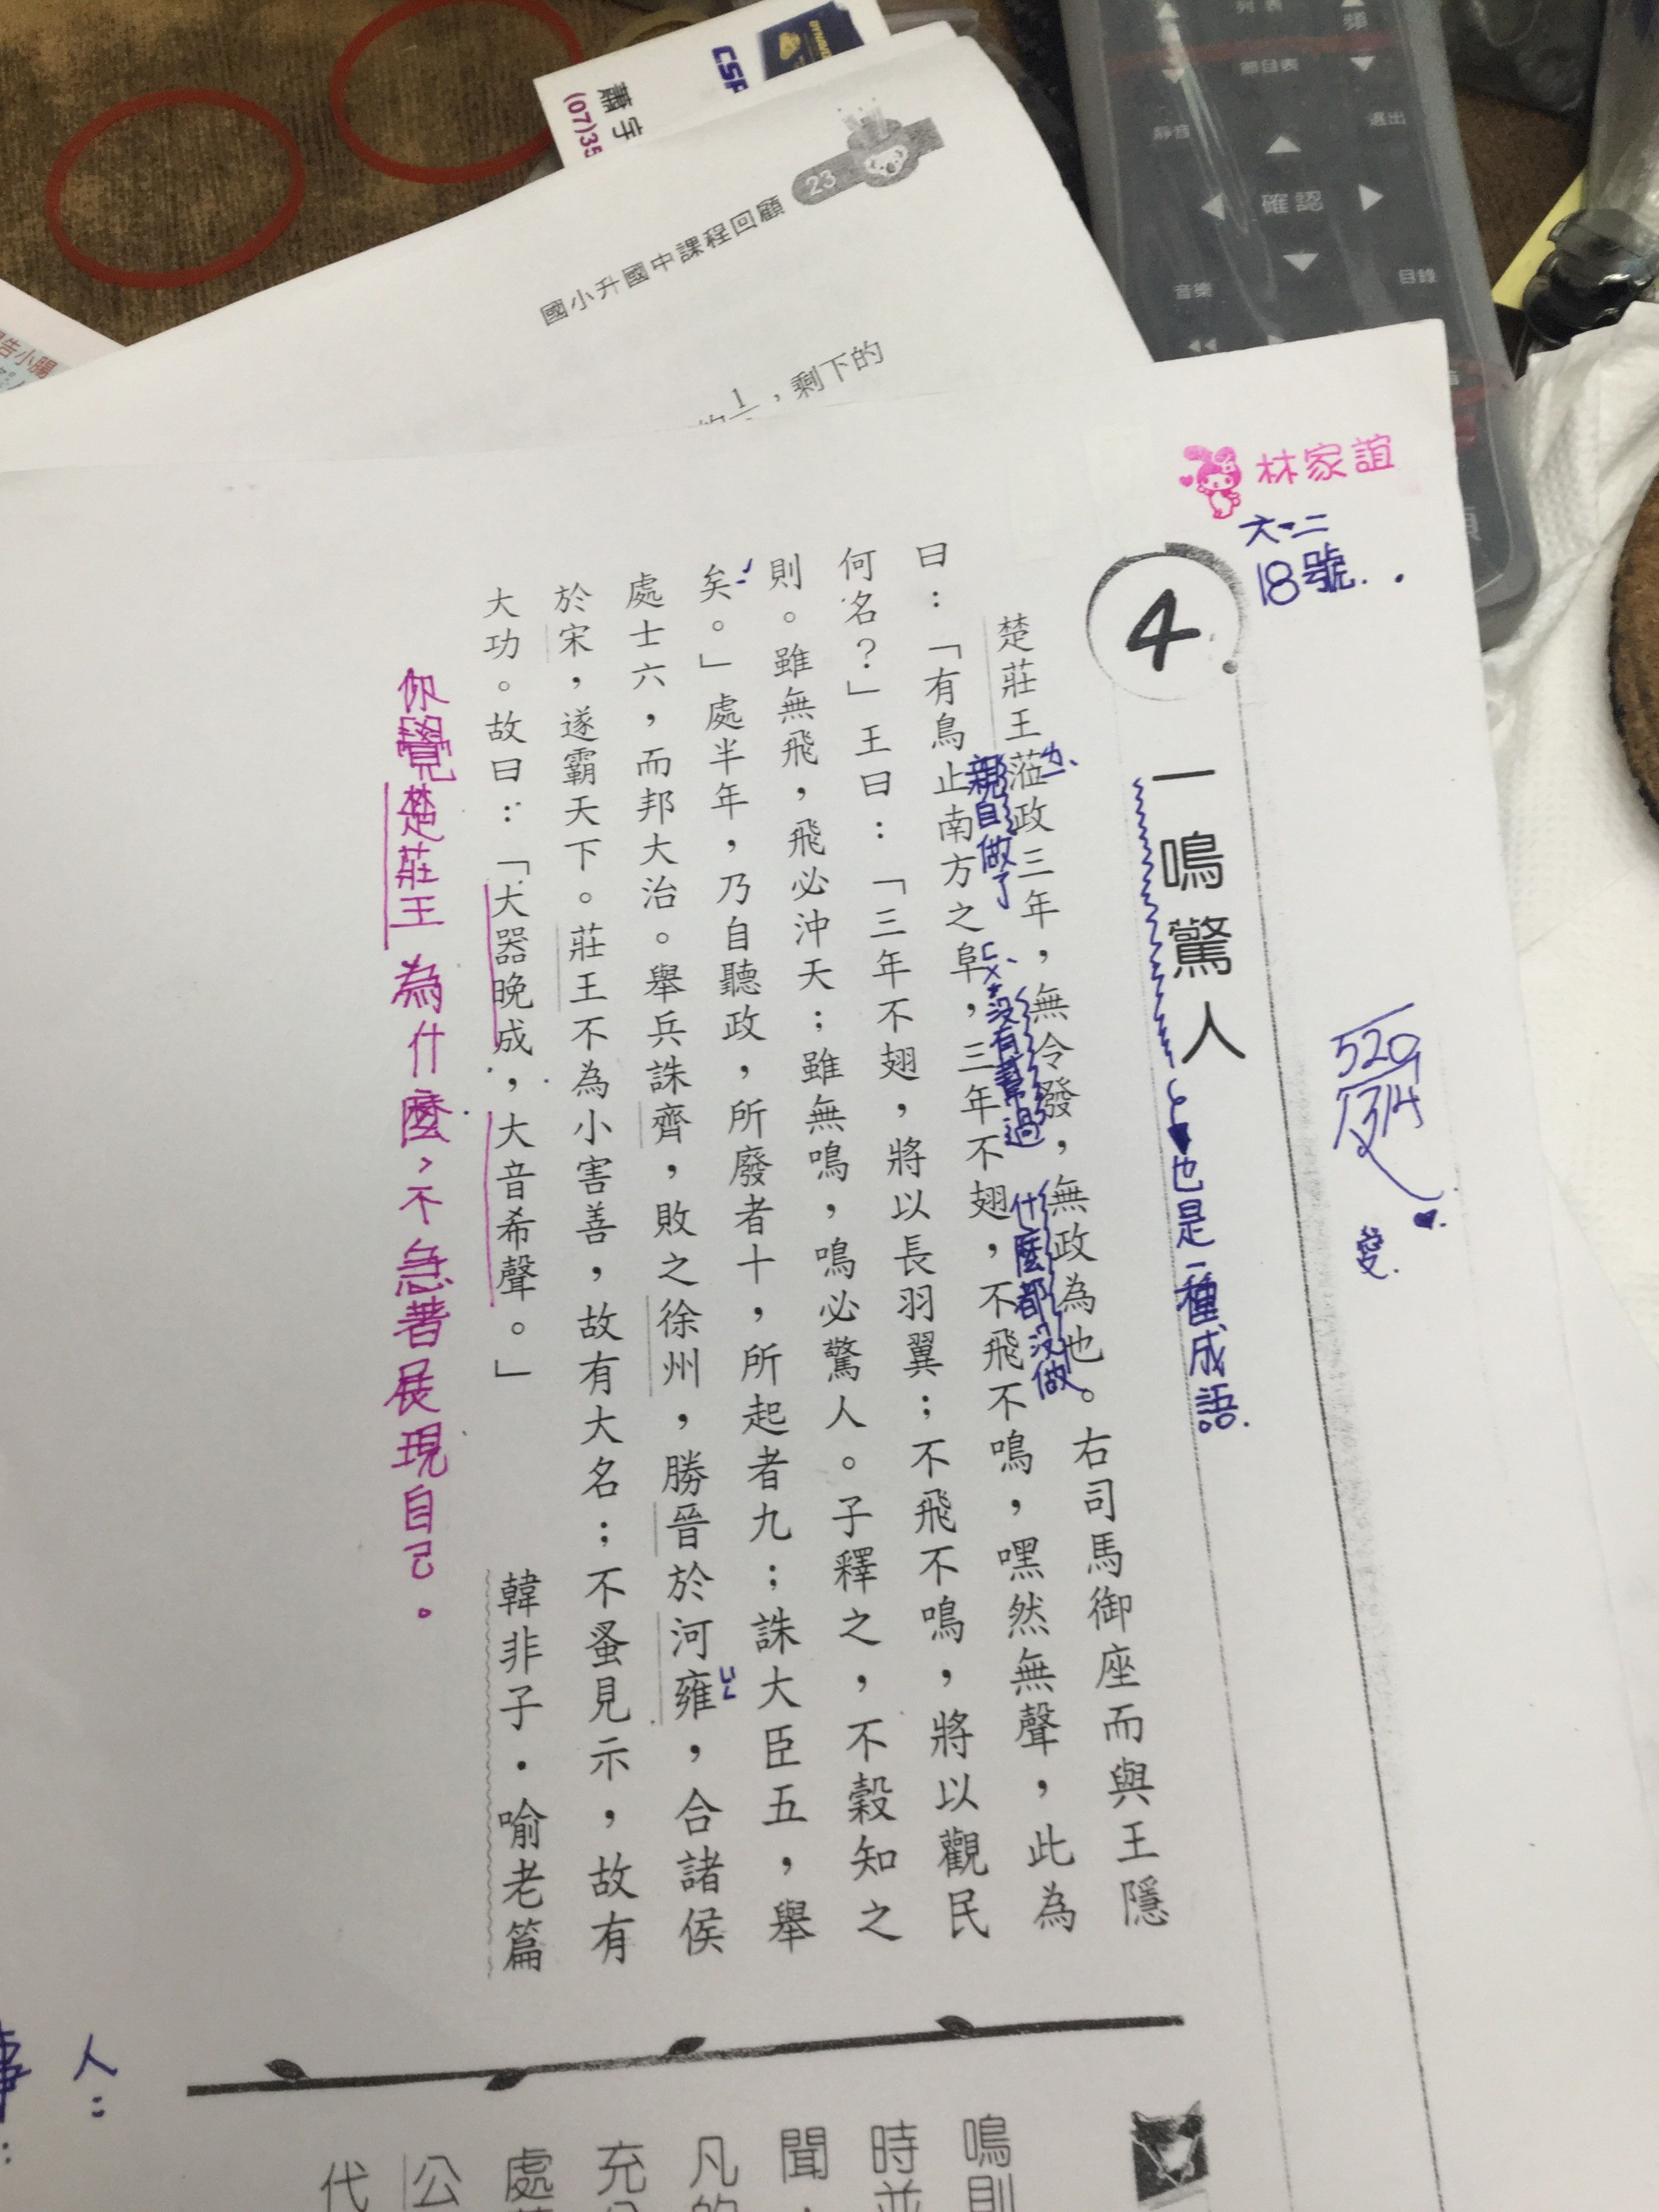 林家誼
六-二
18號..
4
一鳴驚人
也是一種成語.
楚莊王蒞政三年，無令發，無政為也。右司馬御座而與王隱
ㄌㄧˋ
親自做了
沒有幫過
什麼都沒做
曰：「有鳥止南方之阜，三年不翅，不飛不鳴，嘿然無聲，此為
ㄈㄨˋ
何名？」王曰：「三年不翅，將以長羽翼；不飛不鳴，將以觀民
則。雖無飛，飛必沖天；雖無鳴，鳴必驚人。子釋之，不穀知之
矣。」處半年，乃自聽政，所廢者十，所起者九；誅大臣五，舉
處士六，而邦大治。舉兵誅齊，敗之徐州，勝晉於河雍，合諸侯
於宋，遂霸天下。莊王不為小害善，故有大名；不蚤見示，故有
大功。故曰：「大器晚成，大音希聲。」
韓非子．喻老篇
你覺楚莊王為什麼，不急著展現自己。
520
愛.
人：
事：
鳴則
時並
聞，
凡的
充分
處
公
代
國小升國中課程回顧
23
，剩下的
1
CSF
蕭宇
(07)35
列表
頻
節目表
靜音
選出
確認
音樂
目錄
告小關